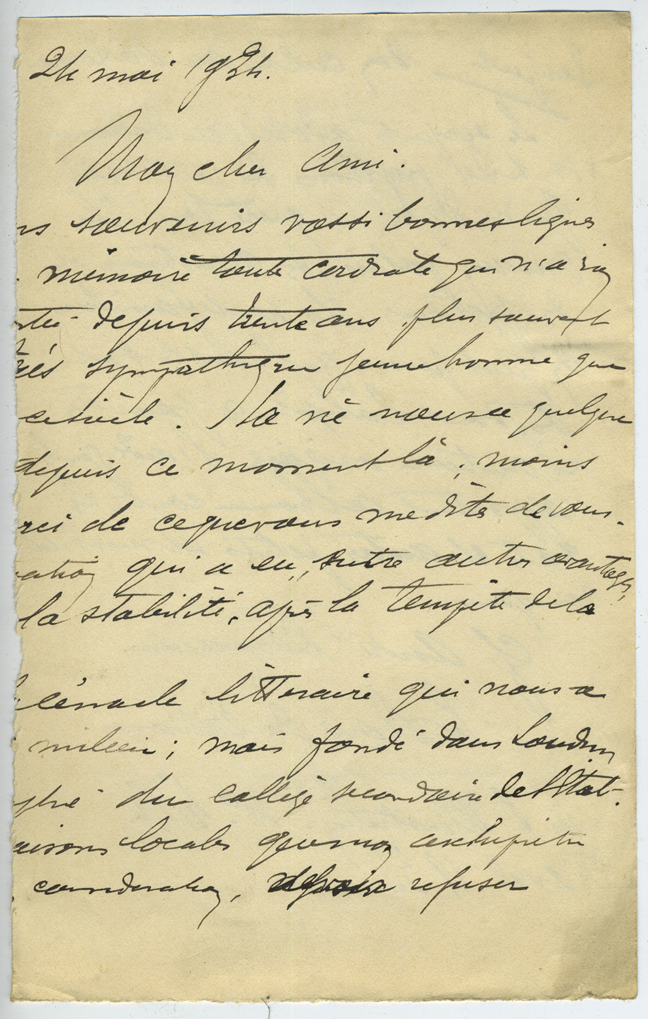 24 mai 1924.
Mon cher Ami.
ns souvenirs vos si bonnes lignes
mémoire toute cordiale qui n'a rien
depuis trente ans plus souvent
rès sympathique jeune homme que
. La vie nous a quelque
depuis ce moment là ; moins
de ce que vous me dites de vous.
ation qui a eu, entre autres avantages,
la stabilité, après la tempête de la
cénacle littéraire qui nous a
milieu ; mais fondé dans
du collège secondaire de l'Etat.
aisons locales que mon architecte
considération, refuser